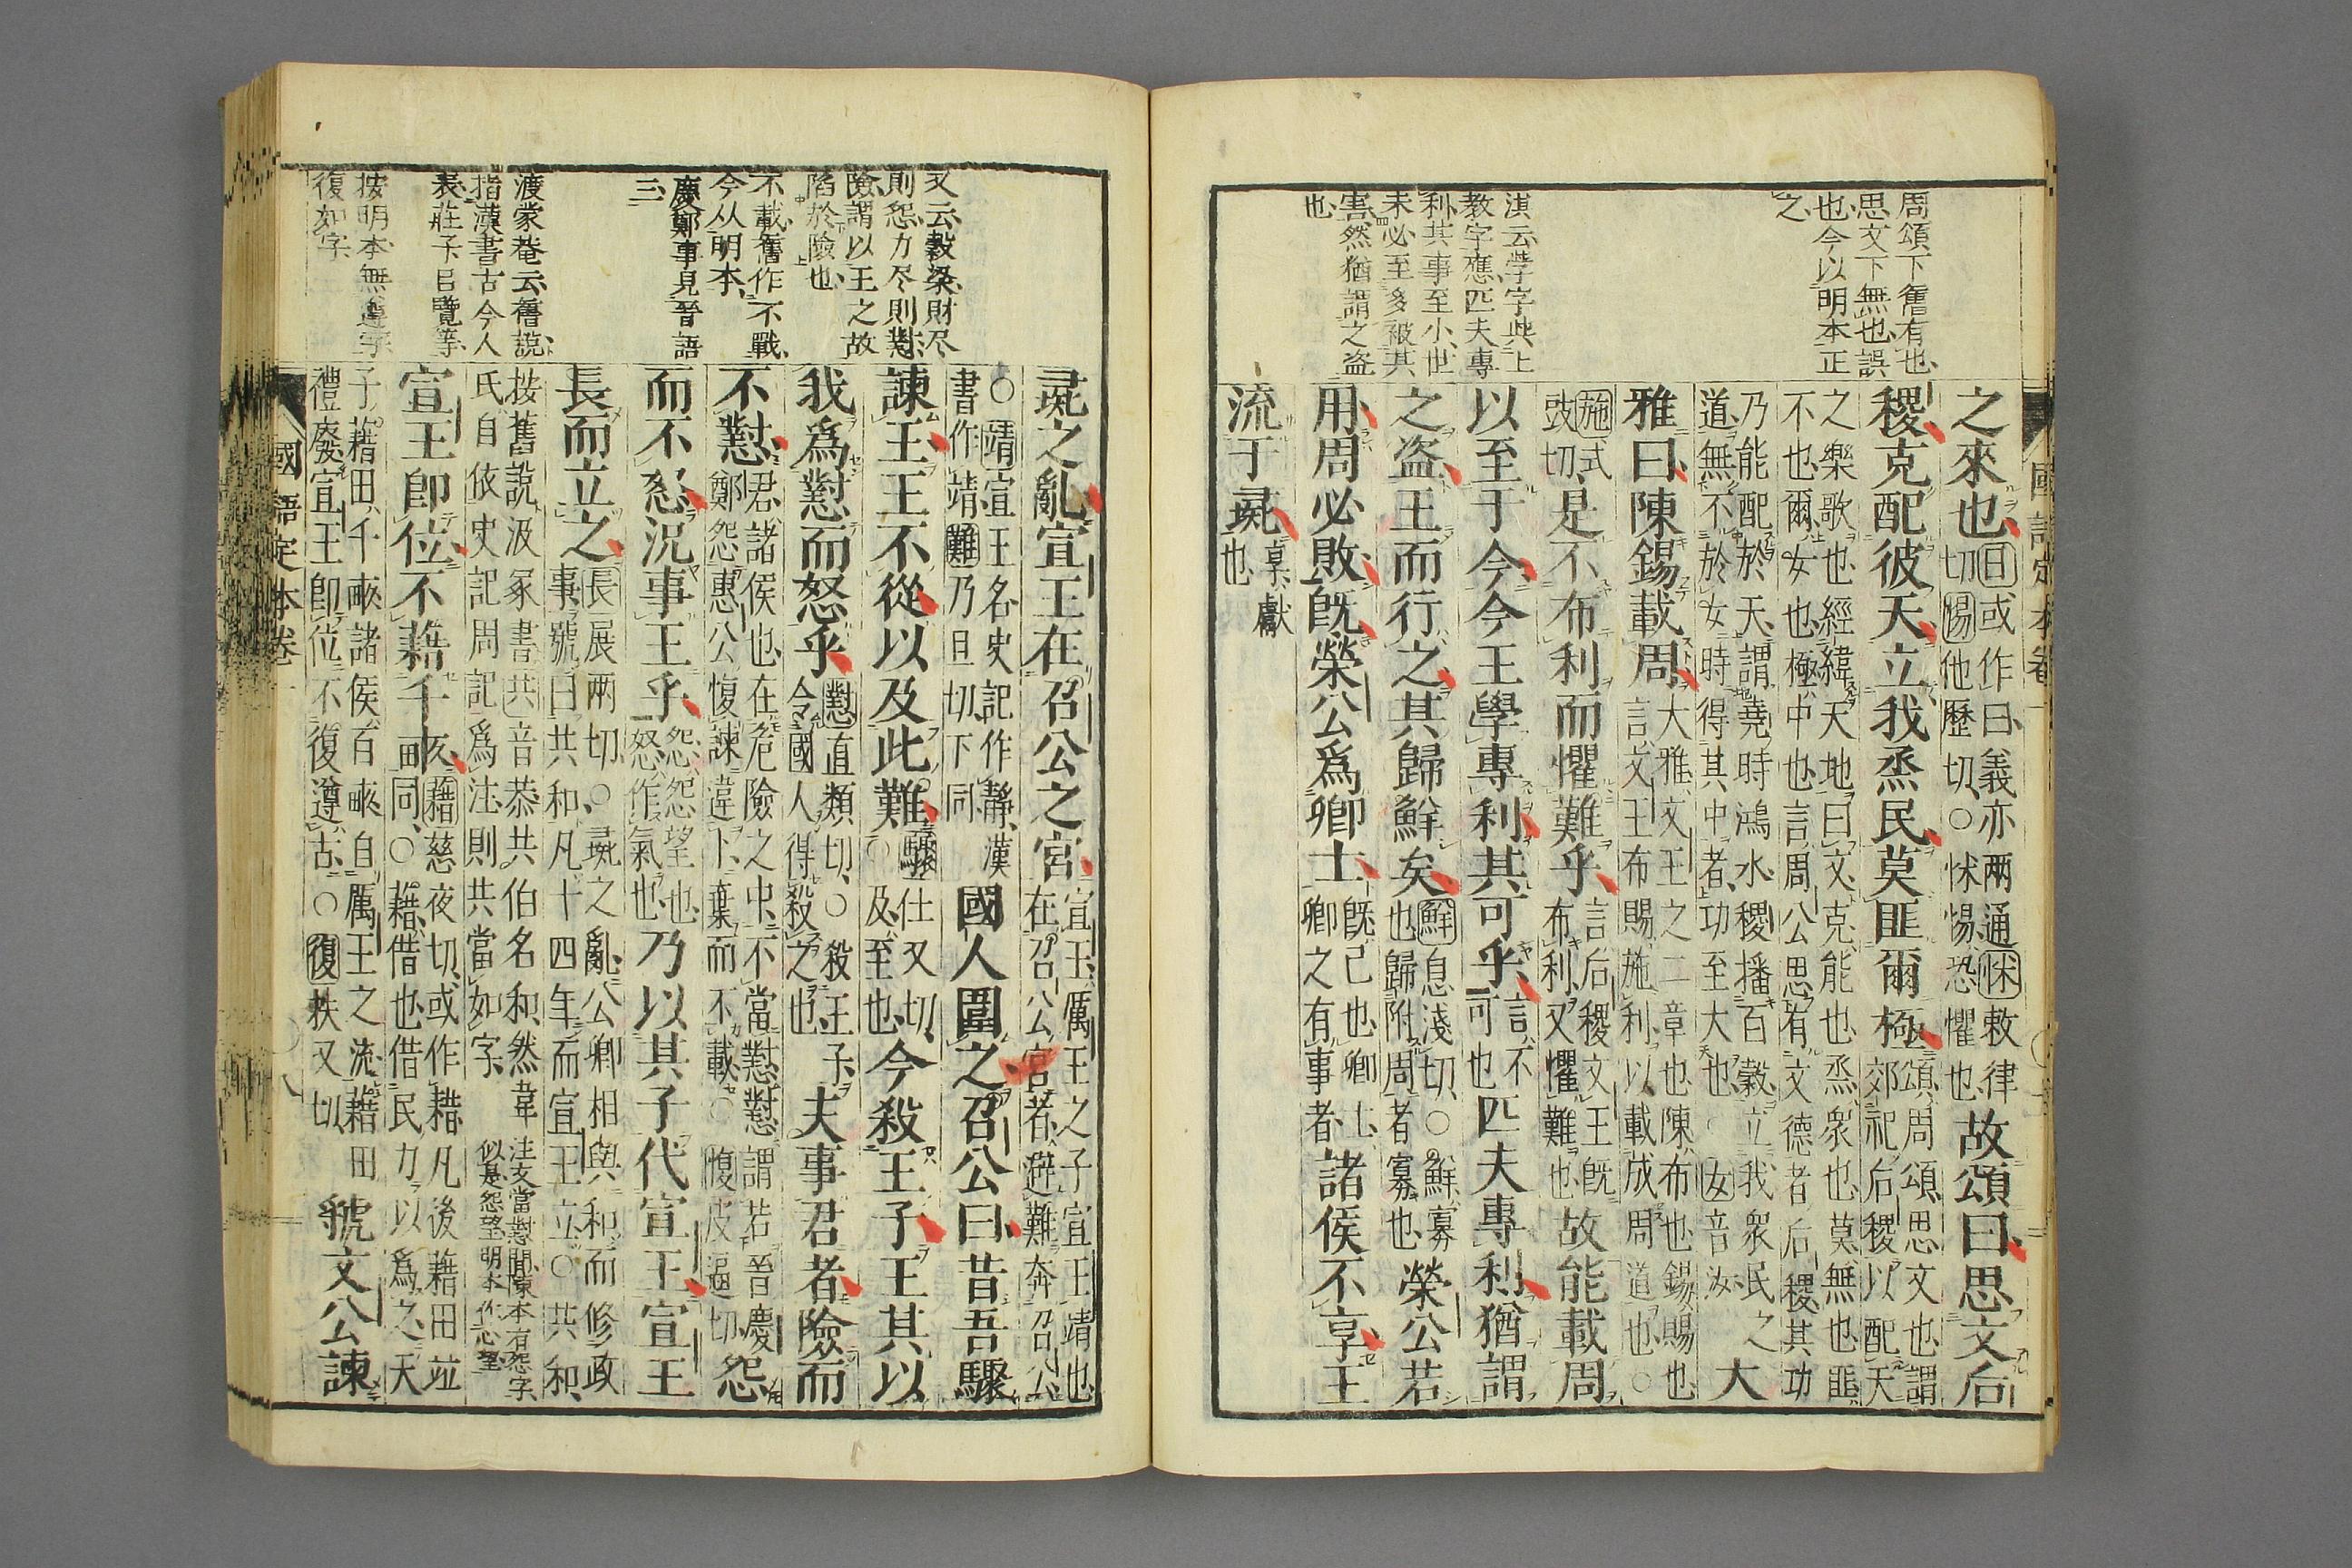 周頌下舊有也
思文下無也誤
也今以明本正
之
淇云學字典上
教字應匹夫專
利其事至小世
未必至多被其
害然猶謂之盜
也
國語定本卷一
之來也
曰或作曰義亦兩通怵敕律
切惕他歷切○怵惕恐懼也
故頌曰思文后
稷克配彼天立我烝民莫匪爾極
頌周頌思文也謂
郊祀后稷以配天
之樂歌也經緯天地曰文克能也烝衆也莫無也匪
不也爾女也極中也言周公思有文德者后稷其功
乃能配於天謂堯時鴻水稷播百穀立我衆民之
道無不於女時得其中者功至大也○女音汝
大
雅曰陳錫載周
大雅文王之二章也陳布也錫賜也
言文王布賜施利以載成周道也○
施式
豉切
是不布利而懼難乎
言后稷文王既
布利又懼難也
故能載周
以至于今今王學專利其可乎
言不
可也
匹夫專利猶謂
之盜王而行之其歸鮮矣
鮮息淺切○鮮寡
也歸附周者寡也
榮公若
用周必敗既榮公爲卿士
既已也卿士
卿之有事者
諸侯不享王
流于彘
享獻
也
又云穀梁財尽
則怨力尽則懟
險謂以王之故
陷於險也
不載舊作不戰
今从明本
慶鄭事見晉語
三
渡蒙菴云舊説
指漢書古今人
表莊子呂覽等
按明本無遵字
復如字
彘之亂宣王在召公之宮
宣王厲王之子宣王靖也
在召公宮者避難奔召公
○靖宣王名史記作靜漢
書作靖難乃旦切下同
國人圍之召公曰昔吾驟
諫王王不從以及此難
驟仕又切
○及至也
今殺王子王其以
我爲懟而怒乎
懟直類切○殺王子
令國人得殺之也
夫事君者險而
不懟
君諸侯也在危險之中不當懟懟謂若晉慶
鄭怨惠公愎諫違卜棄而不載○愎皮逼切
怨
而不怒況事王乎
怨怨望也
怒作氣也
乃以其子代宣王宣王
長而立之
長展兩切○彘之亂公卿相與和而修政
事號曰共和凡十四年而宣王立○共和
按舊説汲冢書共音恭共伯名和然韋
氏自依史記周記爲注則共當如字
注文當懟間陳本有怨字
似是怨望明本作心望
宣王卽位不藉千畝
藉慈夜切或作耤凡後藉田竝
同○藉借也借民力以爲之天
子藉田千畝諸侯百畝自厲王之流藉田
禮廢宣王卽位不復遵古○復扶又切
虢文公諫
國語定本卷一